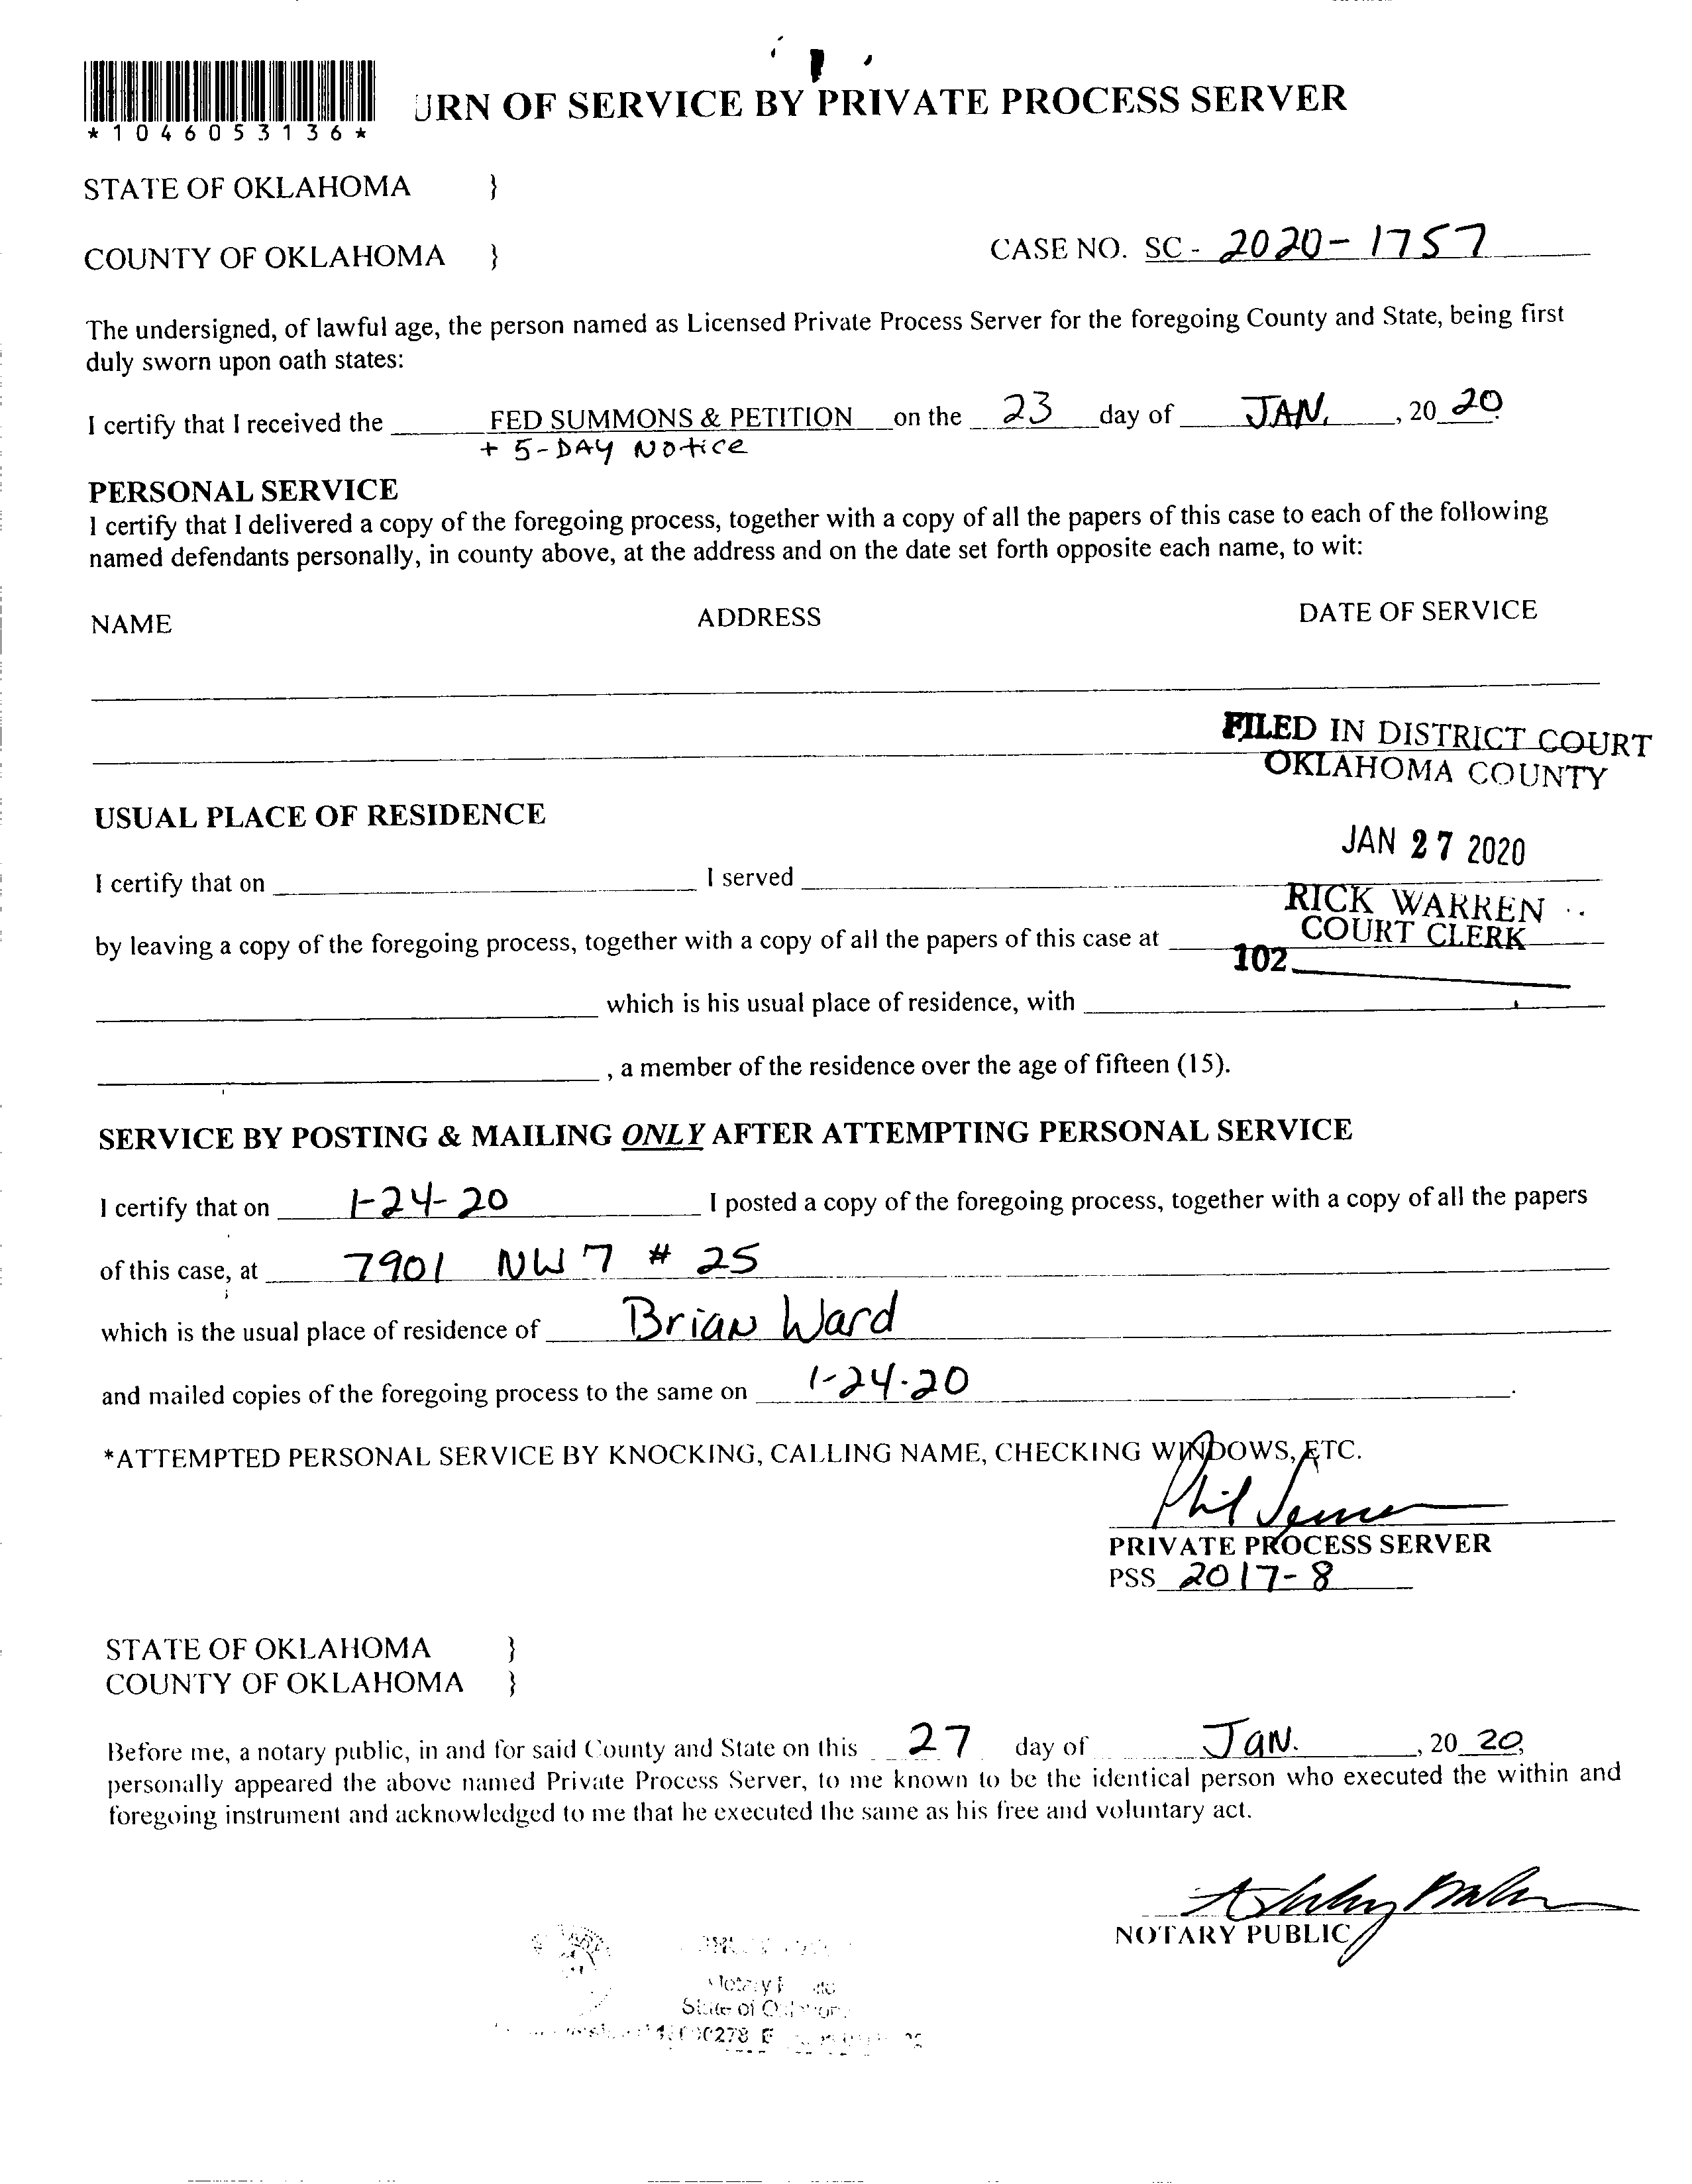 *1046053136*
URN OF SERVICE BY PRIVATE PROCESS SERVER
STATE OF OKLAHOMA }
COUNTY OF OKLAHOMA } CASE NO. SC - 2020-1757
The undersigned, of lawful age, the person named as Licensed Private Process Server for the foregoing County and State, being first
duly sworn upon oath states:
I certify that I received the FED SUMMONS & PETITION on the 23 day of JAN. , 20 20
+ 5-DAY Notice
PERSONAL SERVICE
I certify that I delivered a copy of the foregoing process, together with a copy of all the papers of this case to each of the following
named defendants personally, in county above, at the address and on the date set forth opposite each name, to wit:
NAME ADDRESS DATE OF SERVICE
FILED IN DISTRICT COURT
OKLAHOMA COUNTY
USUAL PLACE OF RESIDENCE
JAN 27 2020
I certify that on I served
RICK WARREN
COURT CLERK
by leaving a copy of the foregoing process, together with a copy of all the papers of this case at
102
which is his usual place of residence, with
, a member of the residence over the age of fifteen (15).
SERVICE BY POSTING & MAILING ONLY AFTER ATTEMPTING PERSONAL SERVICE
I certify that on 1-24-20 I posted a copy of the foregoing process, together with a copy of all the papers
of this case, at 7901 NW 7 # 25
which is the usual place of residence of Brian Ward
and mailed copies of the foregoing process to the same on 1-24-20 .
*ATTEMPTED PERSONAL SERVICE BY KNOCKING, CALLING NAME, CHECKING WINDOWS, ETC.
Phil
PRIVATE PROCESS SERVER
PSS 2017-8
STATE OF OKLAHOMA }
COUNTY OF OKLAHOMA }
Before me, a notary public, in and for said County and State on this 27 day of JAN. , 20 20,
personally appeared the above named Private Process Server, to me known to be the identical person who executed the within and
foregoing instrument and acknowledged to me that he executed the same as his free and voluntary act.
NOTARY PUBLIC
Notary
State of